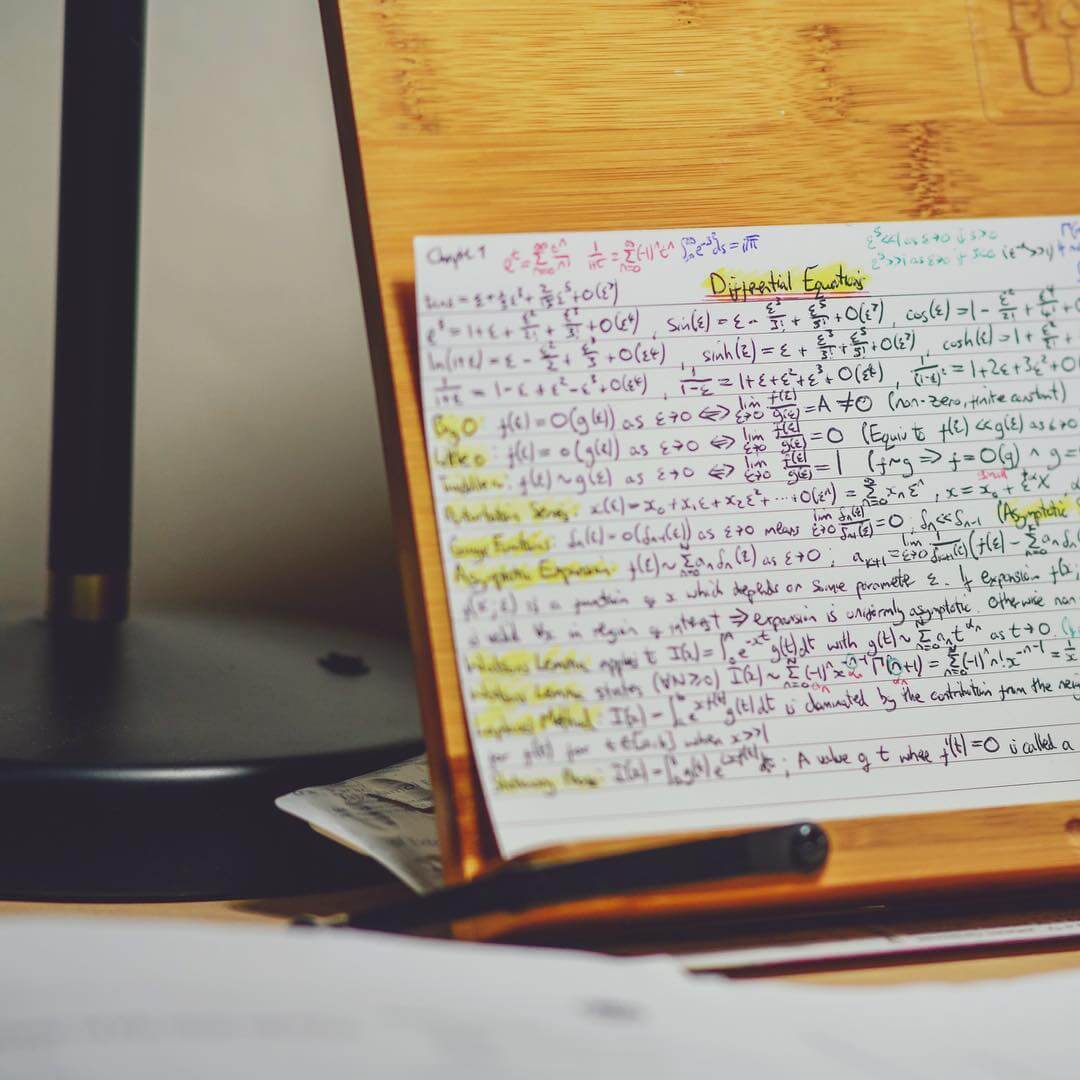 Chapter 1 e^ε = Σ_{n=0}^{∞} ε^n/n! 1/(1+ε) = Σ_{n=0}^{∞} (-1)^n ε^n ∫_{-∞}^{∞} e^{-s²} ds = √π
ε^s << 1 as ε→0 if s>0
ε^s >> 1 as ε→0 if s<0 (e^{-ε} >> 1)
Differential Equations
tan ε = ε + 1/3 ε³ + 2/15 ε⁵ + O(ε⁷)
e^ε = 1 + ε + ε²/2! + ε³/3! + O(ε⁴), sin(ε) = ε - ε³/3! + ε⁵/5! + O(ε⁷), cos(ε) = 1 - ε²/2! + ε⁴/4! +
ln(1+ε) = ε - ε²/2 + ε³/3 + O(ε⁴) sinh(ε) = ε + ε³/3! + ε⁵/5! + O(ε⁷), cosh(ε) = 1 + ε²/2! +
1/(1+ε) = 1 - ε + ε² - ε³ + O(ε⁴), 1/(1-ε) = 1 + ε + ε² + ε³ + O(ε⁴), 1/(1-ε)² = 1 + 2ε + 3ε² + O
Big O: f(ε) = O(g(ε)) as ε→0 ⟺ lim_{ε→0} f(ε)/g(ε) = A ≠ 0 (non-zero, finite constant)
Little o: f(ε) = o(g(ε)) as ε→0 ⟺ lim_{ε→0} f(ε)/g(ε) = 0 (Equiv to f(ε) << g(ε) as ε→0
f(ε) ~ g(ε) as ε→0 ⟺ lim_{ε→0} f(ε)/g(ε) = 1 (f~g ⟹ f = O(g) ∧ g =
Perturbation Series: x(ε) = x₀ + x₁ε + x₂ε² + ... + O(ε^n) = Σ_{n=0}^{∞} x_n ε^n, x = x₀ + ε^α X,
Gauge Functions: δ_n(ε) = o(δ_{n-1}(ε)) as ε→0 means lim_{ε→0} δ_n(ε)/δ_{n-1}(ε) = 0; δ_n << δ_{n-1} (Asymptotic
Asymptotic Expansion: f(ε) ~ Σ_{n=0}^{N} a_n δ_n(ε) as ε→0; a_{k+1} = lim_{ε→0} 1/δ_{k+1}(ε) (f(ε) - Σ a_n δ_n
f(x;ε) is a function of x which depends on some parameter ε. If expansion f(x;
is valid ∀x in region of interest ⟹ expansion is uniformly asymptotic. Otherwise non
Watson's Lemma applies to I(x) = ∫₀ e^{-xt} g(t) dt with g(t) ~ Σ_{n=0}^{N} a_n t^{α_n} as t→0
Watson's Lemma states (∀N≥0) I(x) ~ Σ_{n=0}^{N} (-1)^n x^{-n-1} Γ(n+1) = Σ_{n=0}^{N} (-1)^n n! x^{-n-1} = 1/x
Laplace's Method: I(x) = ∫_a^b e^{xf(t)} g(t) dt is dominated by the contribution from the
for f(t) for t∈[a,b] when x>>1
Stationary Phase: I(x) = ∫ g(t) e^{ixf(t)} dt; A value of t where f'(t) = 0 is called a